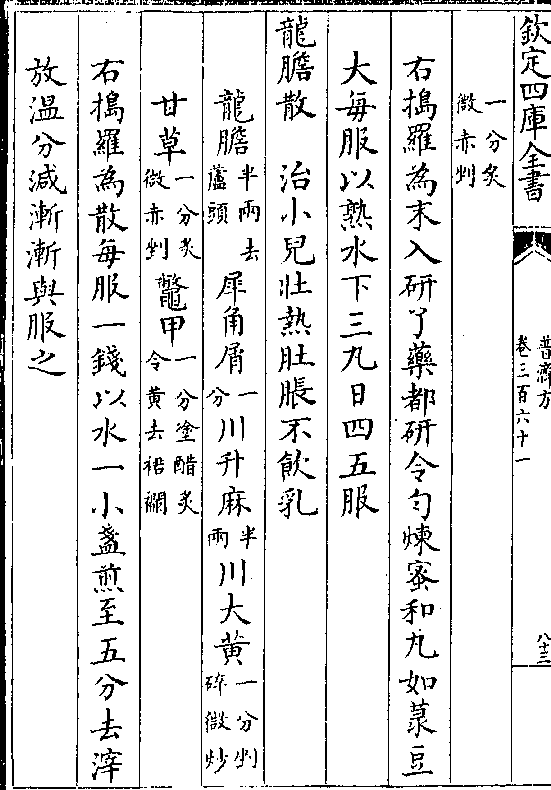 欽定四庫全書
普濟方
卷三百六十一
八十三
一分炙
微赤剉
右搗羅為末入研了藥都研令勻煉蜜和丸如菉豆
大每服以熟水下三丸日四五服
龍膽散　治小兒壯熱肚脹不飲乳
龍膽半兩去蘆頭　犀角屑一分　川升麻半兩　川大黄一分剉碎微炒
甘草一分炙微赤剉　鼈甲一分塗醋炙令黄去裙襴
右搗羅為散每服一錢以水一小盞煎至五分去滓
放温分減漸漸與服之